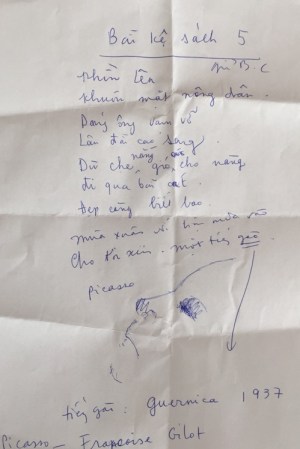 Bài kệ sách 5
gửi B.C
nhìn lên
khuôn mặt nông dân
Dáng ông
Lâu đài cao sang
Dù che nắng gió cho nàng
đi qua bãi cát
Đẹp căng biết bao
mùa xuân
Cho tôi xin một tiếng gào
Picasso
tiếng gào : Guernica 1937
Picasso - Françoise Gilot